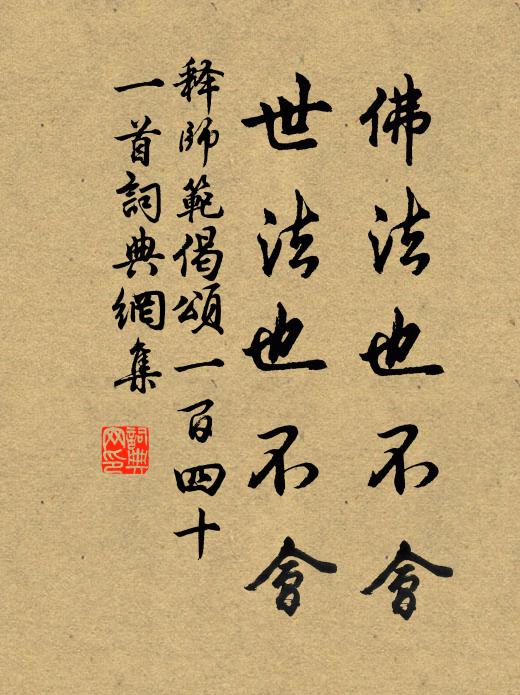 佛法也不會
世法也不會
释師範偈頌一百四十
一首詞典網集
詞典网印